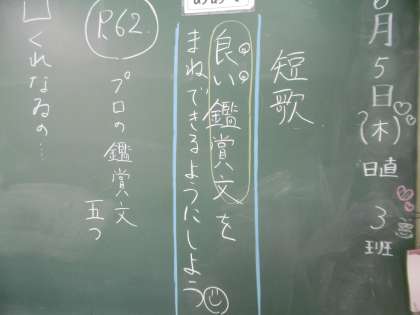 月5日(木)日直3班
短歌
良い鑑賞文を
まねできるようにしよう
P.62.
プロの鑑賞文 五つ
くれなゐの…